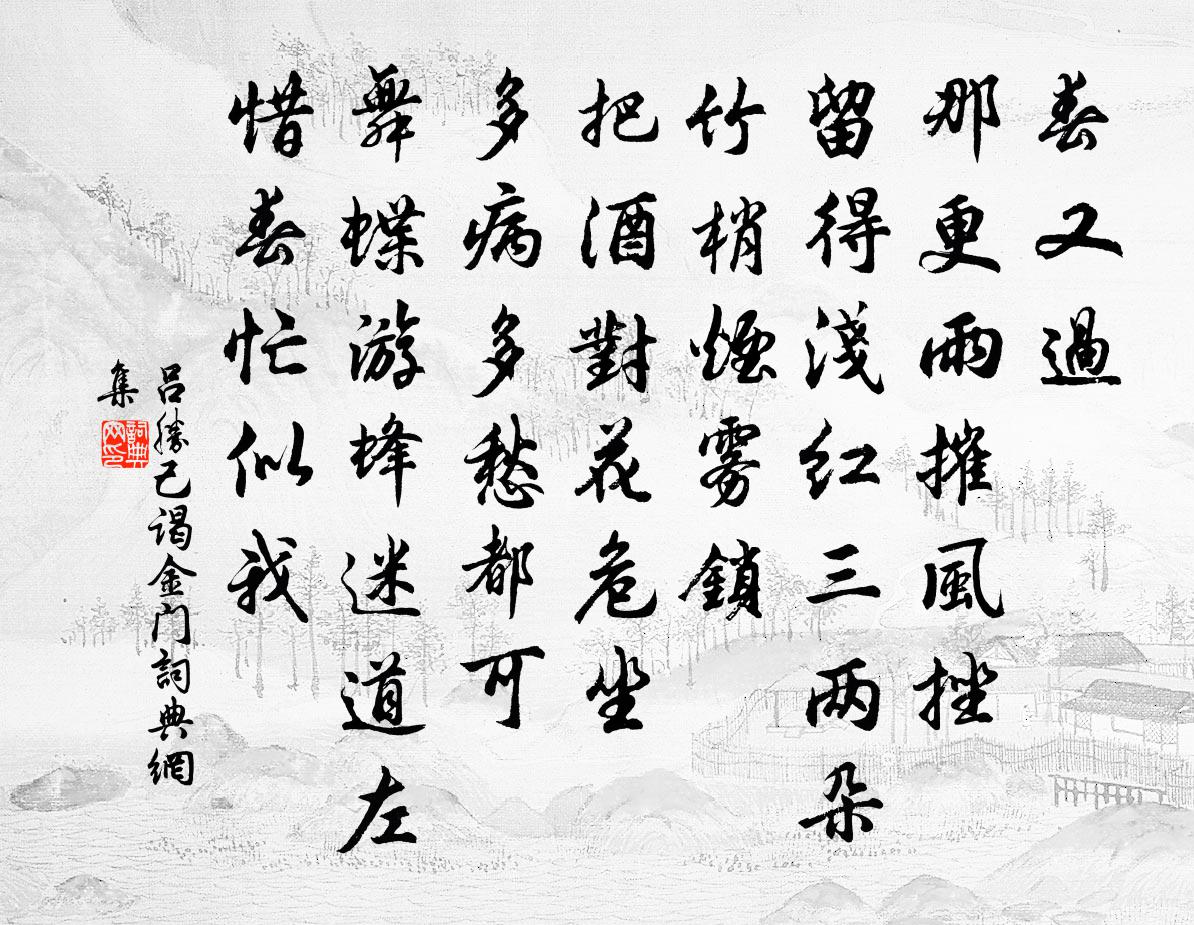 春又過
那更雨摧風挫
留得淺红三两朵
竹梢煙雾鎖
把酒對花危坐
多病多愁都可
舞蝶游蜂迷道左
惜春忙似我
吕勝己谒金门詞典網
集
詞典
网印